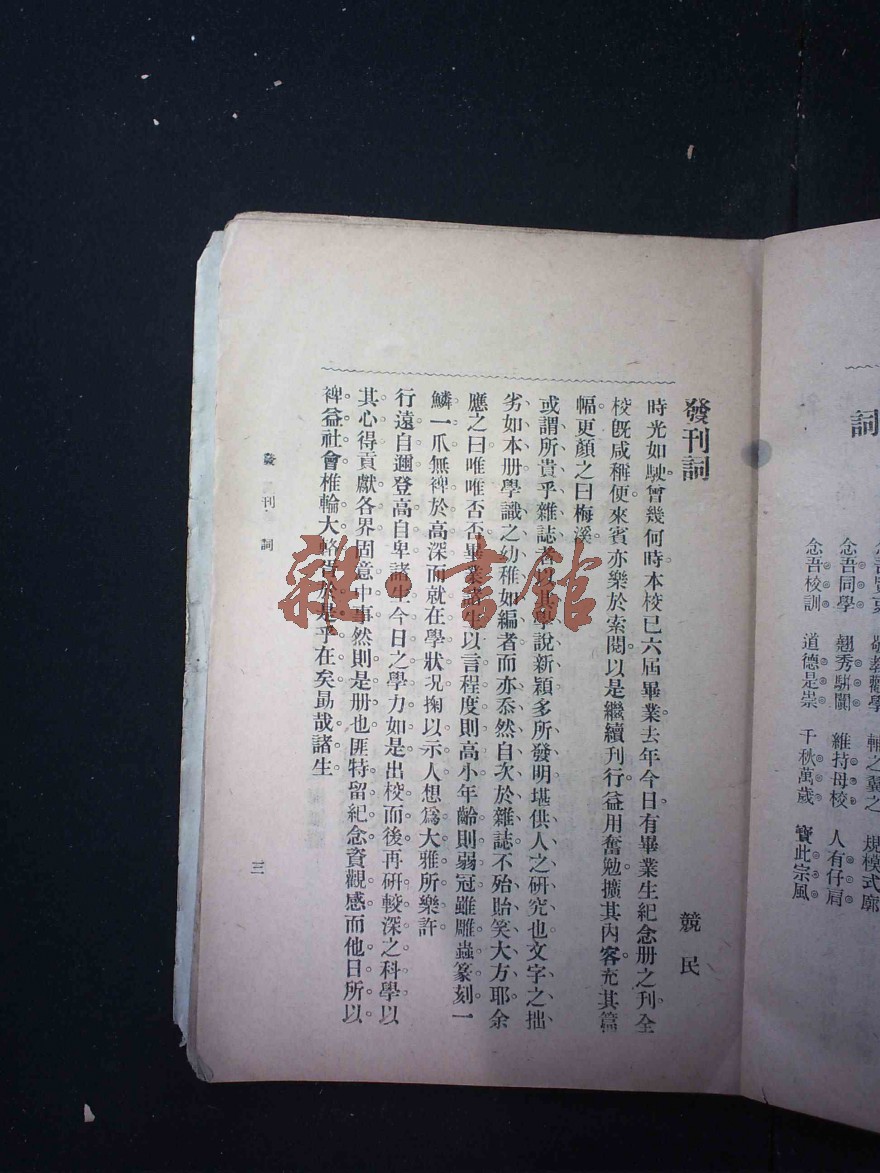 詞
敬教勸學　輔之翼之　規模式廓
念吾同學　翹秀駢闐　維持母校　人有仔肩
念吾校訓　道德是崇　千秋萬歲　寶此宗風
發刊詞
競民
時光如駛曾幾何時本校已六屆畢業去年今日有畢業生紀念册之刊全
校旣咸稱便來賓亦樂於索閱以是繼續刊行益用奮勉擴其內容充其篇
幅更顏之曰梅溪
或謂所貴乎雜誌者以其學說新穎多所發明堪供人之硏究也文字之拙
劣如本册學識之幼稚如編者而亦忝然自次於雜誌不殆貽笑大方耶余
應之曰唯唯否否畢業諸生以言程度則高小年齡則弱冠雖雕蟲篆刻一
鱗一爪無裨於高深而就在學狀况掬以示人想爲大雅所樂許
行遠自邇登高自卑諸生今日之學力如是出校而後再硏較深之科學以
其心得貢獻各界固意中事然則是册也匪特留紀念資觀感而他日所以
裨益社會椎輪大輅胥於是乎在矣勗哉諸生
發刊詞
三
雜·書館